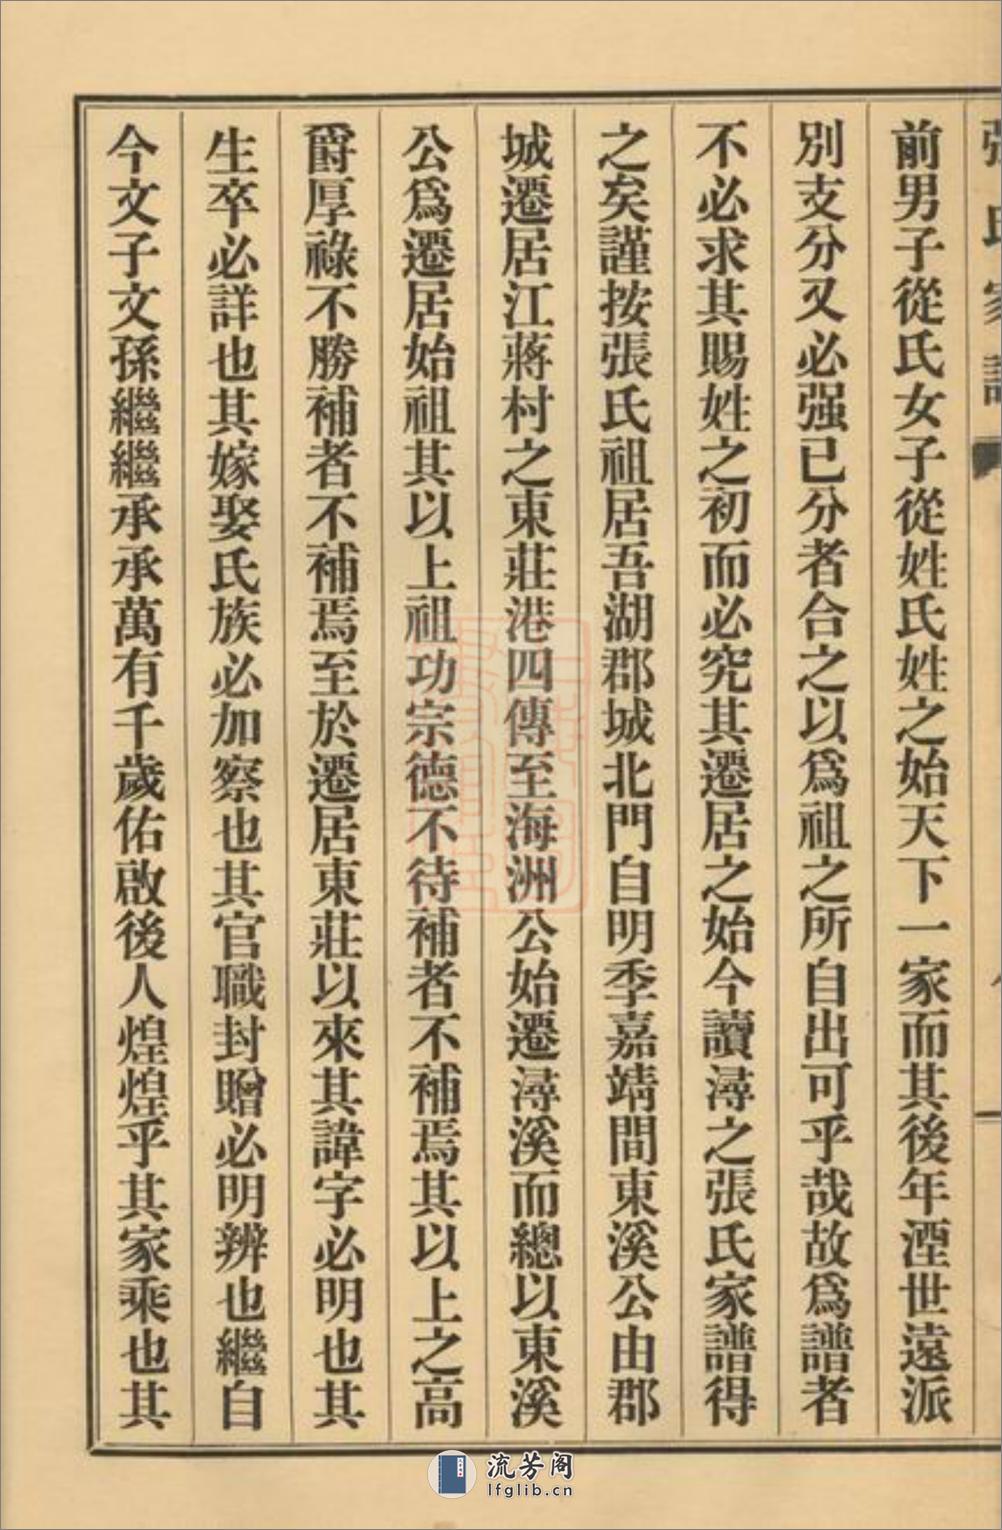 張氏家譜
前男子從氏女子從姓氏姓之始天下一家而其後年湮世遠派
別支分又必强已分者合之以爲祖之所自出可乎哉故爲譜者
不必求其賜姓之初而必究其遷居之始今讀潯之張氏家譜得
之矣謹按張氏祖居吾湖郡城北門自明季嘉靖間東溪公由郡
城遷居江蔣村之東莊港四傳至海洲公始遷潯溪而總以東溪
公爲遷居始祖其以上祖功宗德不待補者不補焉其以上之高
爵厚祿不勝補者不補焉至於遷居東莊以來其諱字必明也其
生卒必詳也其嫁娶氏族必加察也其官職封贈必明辨也繼自
今文子文孫繼繼承承萬有千歲佑啟後人煌煌乎其家乘也其
流芳阁
lfglib.cn